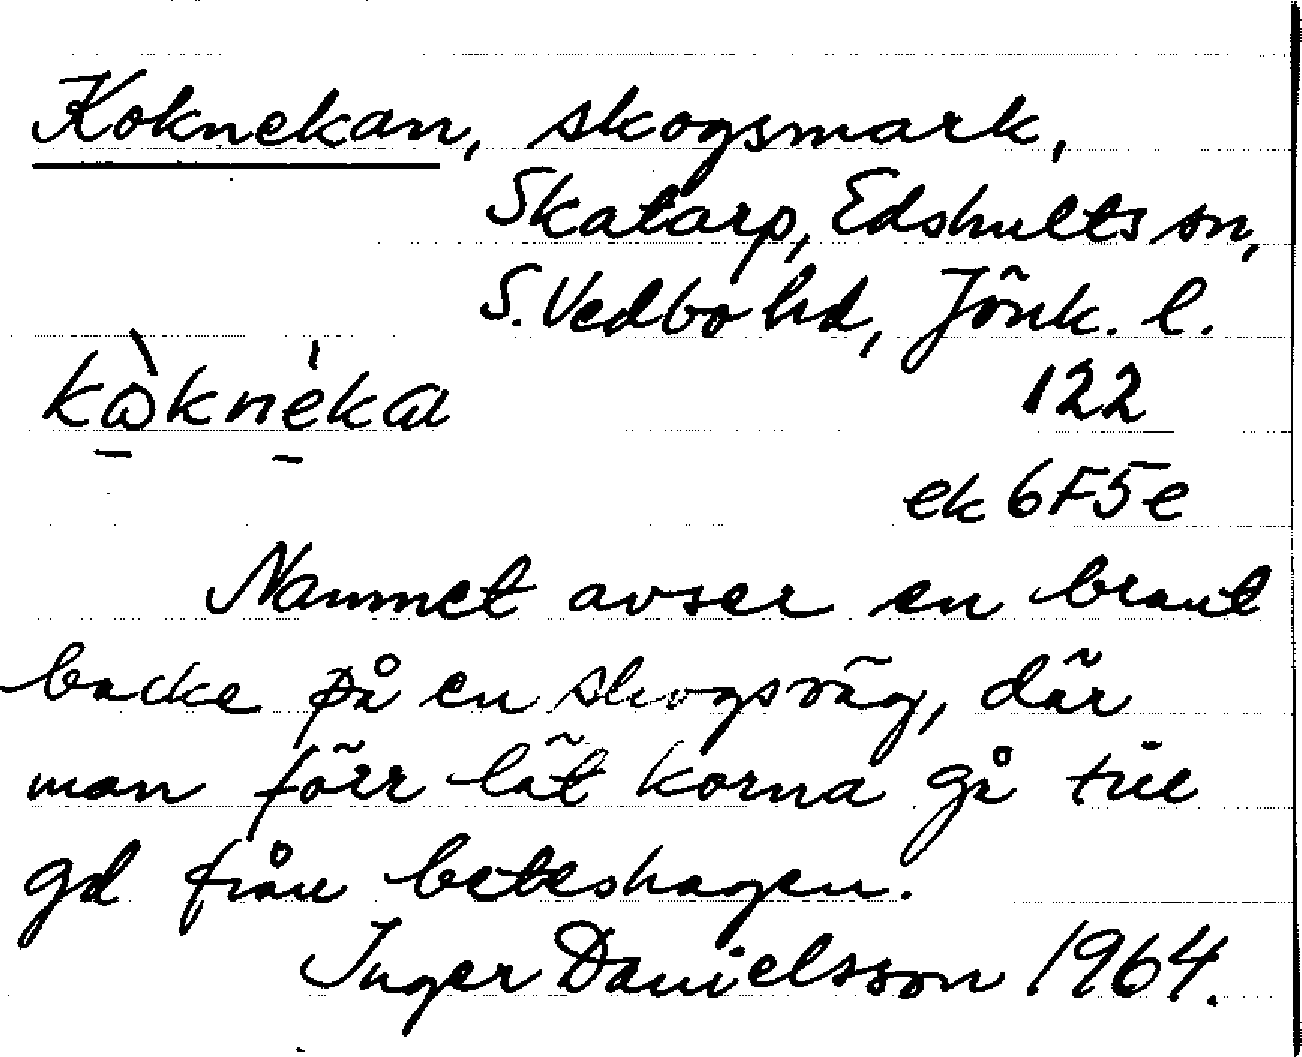 Koknekan, skogsmark,
Skatarp, Edshults sn,
S. Vedbo hd, Jönk. l.
kὼknékɑ 122
ek 6F5e
Namnet avser en brant
backe på en skogsväg, där
man förr lät korna gå till
gd från beteshagen.
Inger Danielsson 1964.